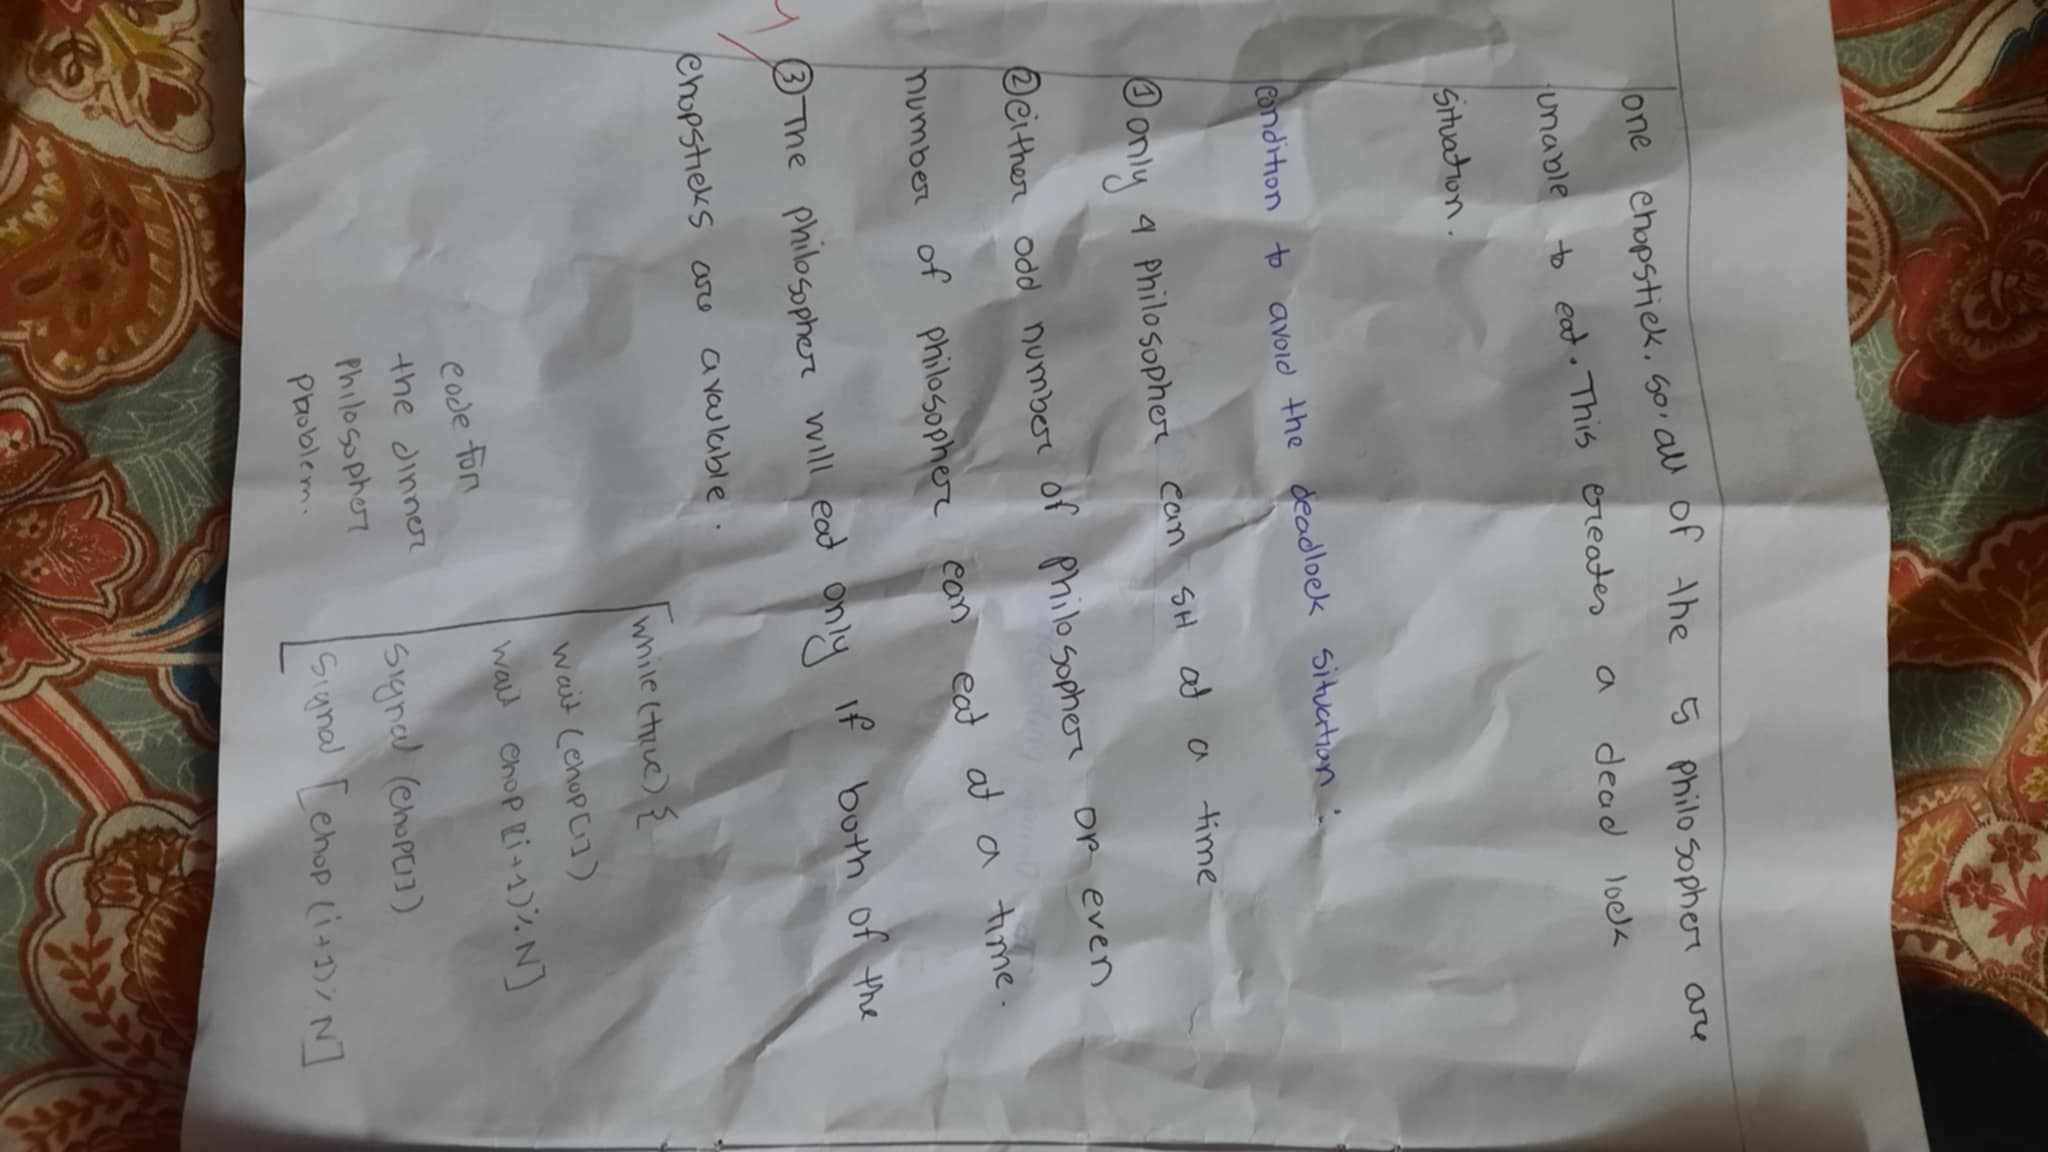 one chopstick. so, all of the 5 philosopher are
unable to eat. This creates a dead lock
situation.
condition to avoid the deadlock situation:
① only 4 philosopher can sit at a time
② either odd number of philosopher or even
number of philosopher can eat at a time.
③ The philosopher will eat only if both of the
chopsticks are available.
while(true) {
wait (chop[i])
wait chop[(i+1)%N]
signal (chop[i])
signal [chop(i+1)%N]
code for
the dinner
philosopher
plooblem.